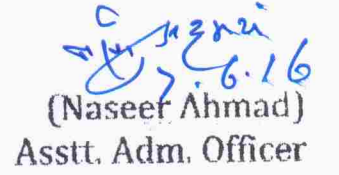 7.6.16
(Naseer Ahmad)
Asstt. Adm. Officer